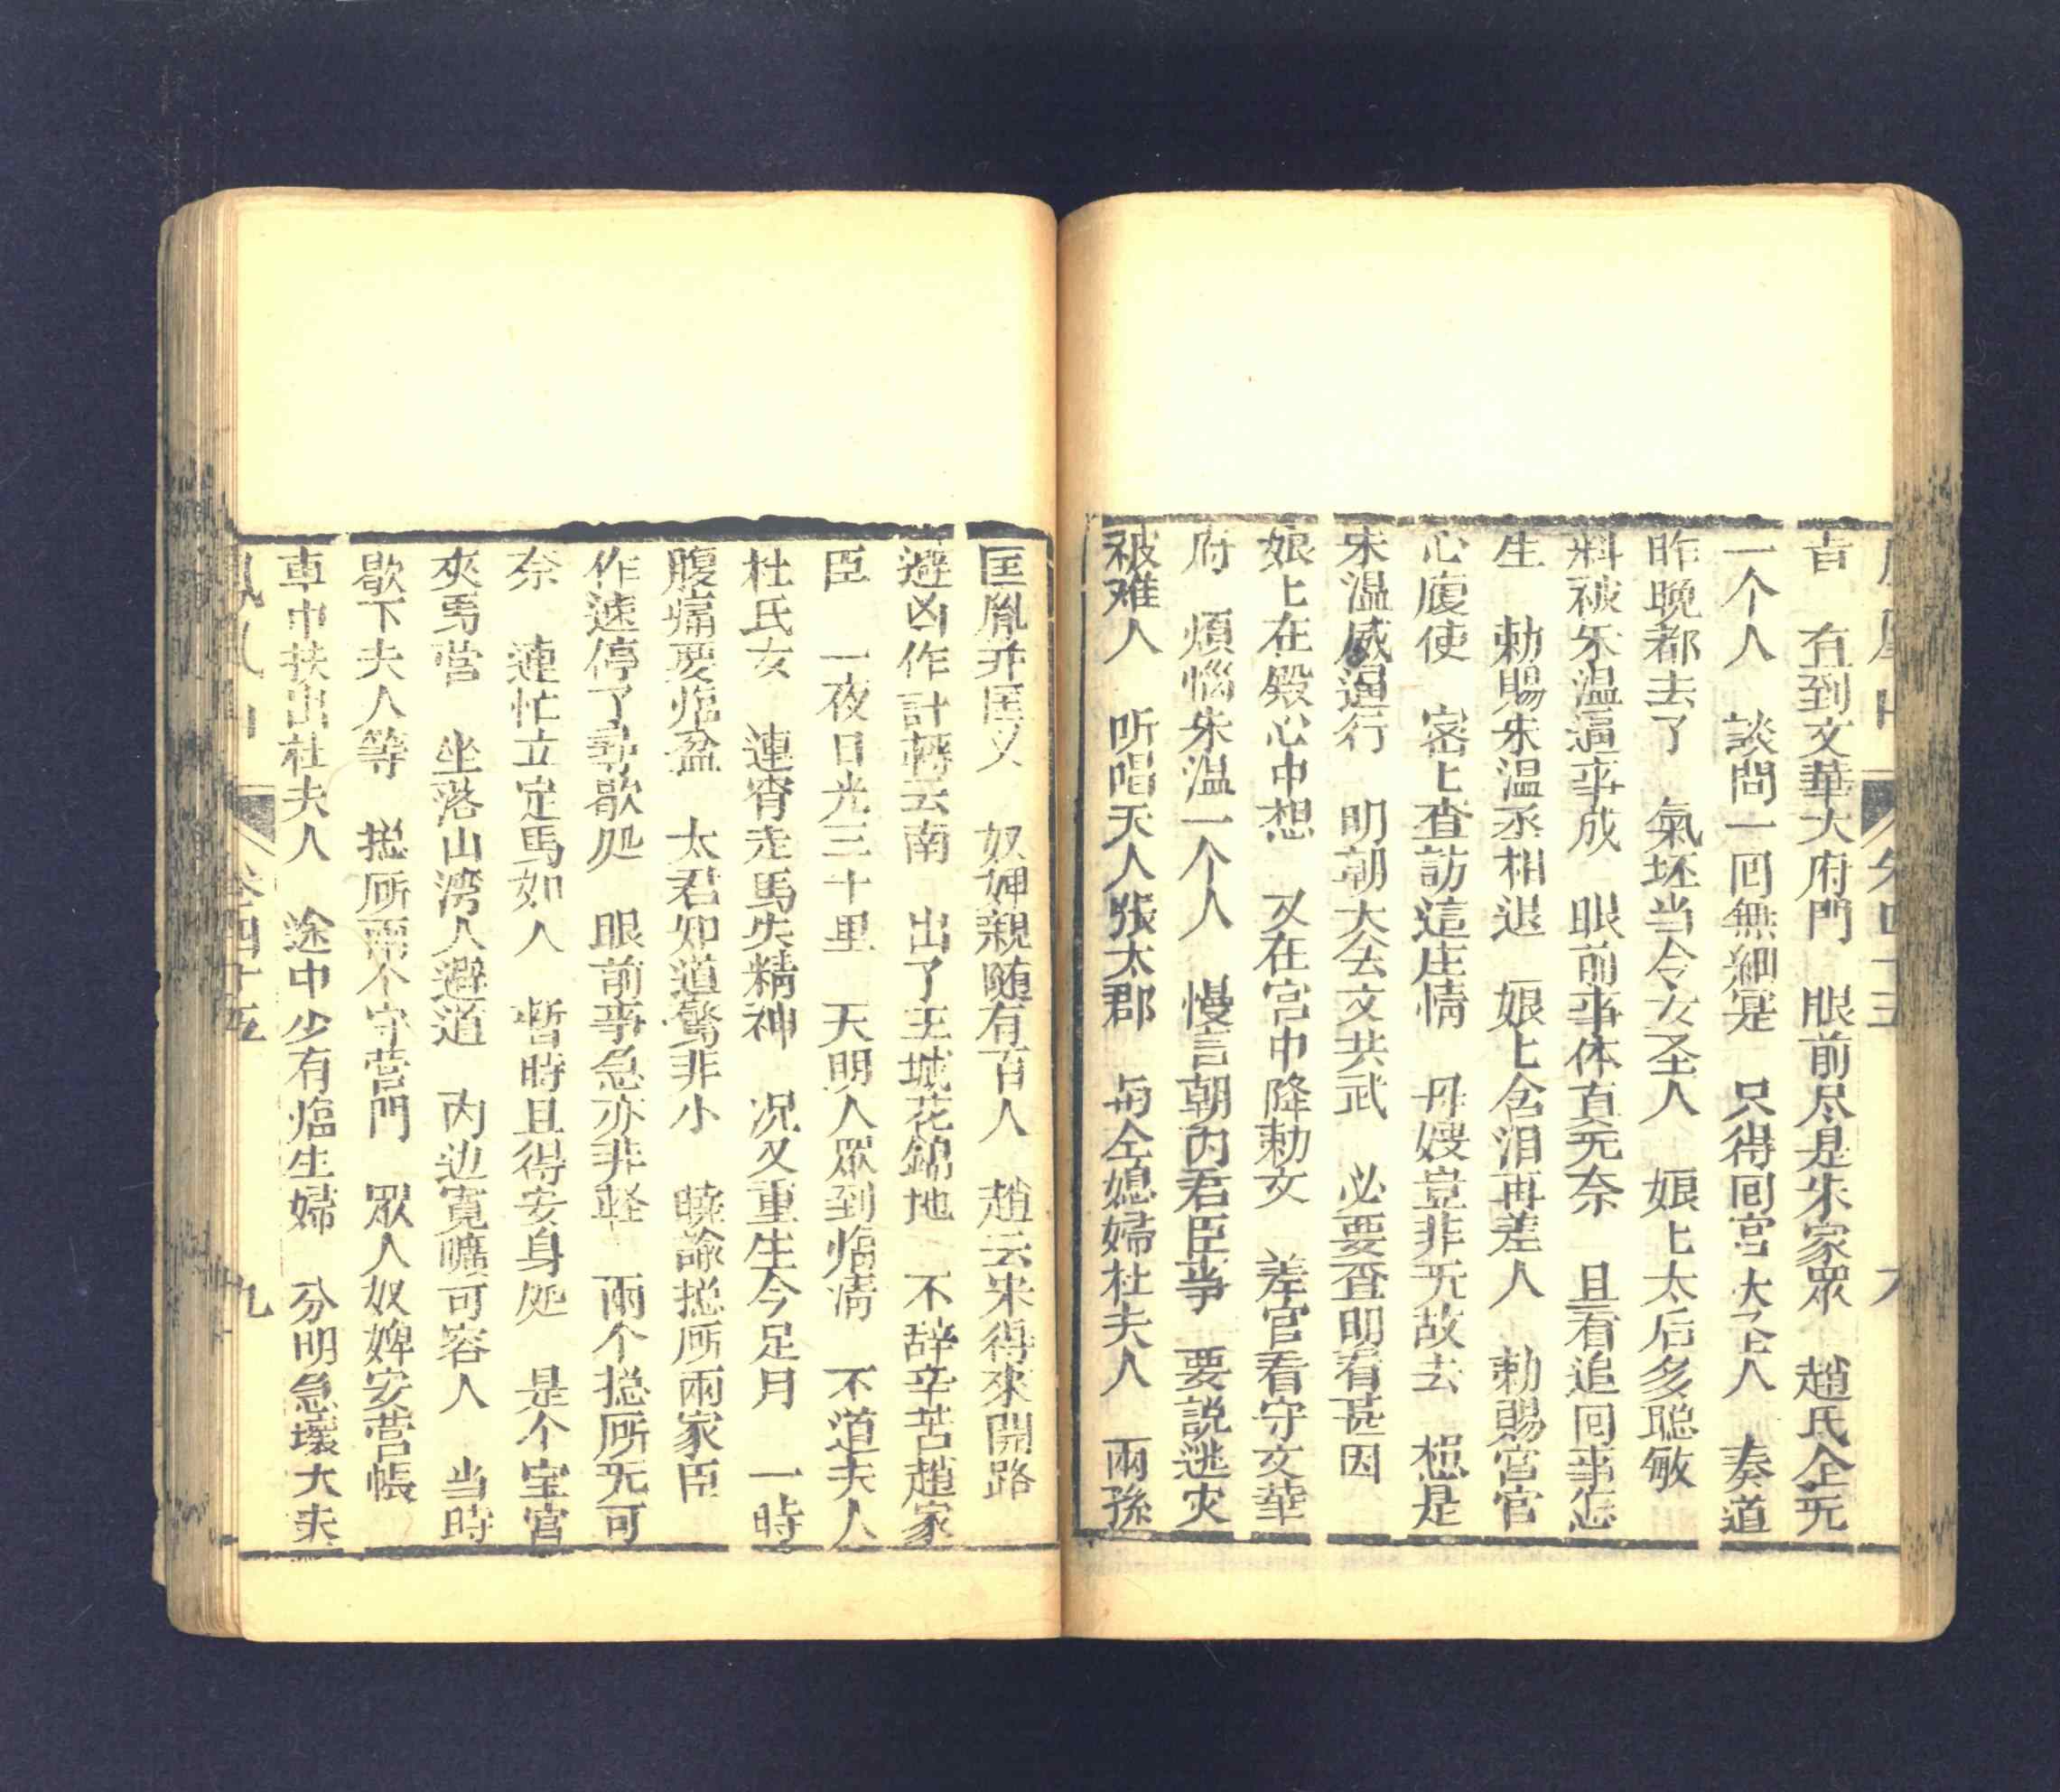 旨 有到文華大府門 眼前尽是朱家眾 趙氏仝无
一个人 談問一囬無細寔 只得囬宮大圣人 奏道
昨晚都去了 氣坯当今女圣人 娘上太后多聡敏
料被朱温逼事成 眼前事体真无奈 且看追囬事怎
生 勅賜朱温丞相退 娘上含泪再差人 勅賜宮官
心腹使 宻上查訪這庄情 丹嫂豈非无故去 想是
朱温威逼行 明朝大会文共武 必要查明有甚因
娘上在殿心中想 又在宮中降勅文 差官看守文華
府 煩惱朱温一个人 慢言朝内君臣爭 要説逃灾
被难人 听唱夫人張太郡 与仝媳婦杜夫人 兩孫
匡胤并匡乂 奴婢親随有百人 趙云宋得來開路
避凶作計轉云南 出了王城花錦地 不辞辛苦趙家
臣 一夜日光三十里 天明人眾到临清 不道夫人
杜氏女 連宵走馬失精神 况又重生今足月 一時
腹痛要临盆 太君知道驚非小 暁諭捴厨兩家臣
作速停了尋歇処 眼前事急亦非軽 兩个捴厨无可
奈 連忙立定馬如人 暫時且得安身処 是个宝宫
夾馬营 坐落山湾人避道 内边寬曠可容人 当時
歇下夫人等 捴厨兩个守营門 眾人奴婢安营帳
車中扶出杜夫人 途中少有临生婦 分明急壞大夫
卷四十五
九